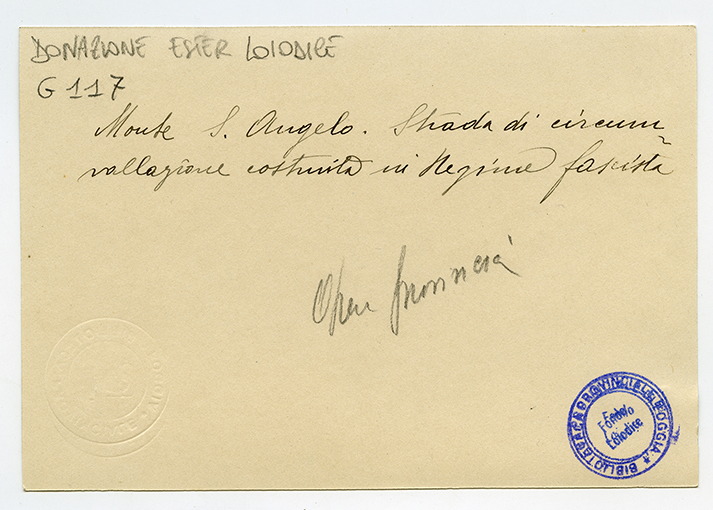 DONAZIONE ESTER LOIODICE
G 117
Monte S. Angelo. Strada di circum
vallazione costruita in Regime fascista
Opere
BIBLIOTECA PROVINCIALE FOGGIA *
Fondo
Loiodice